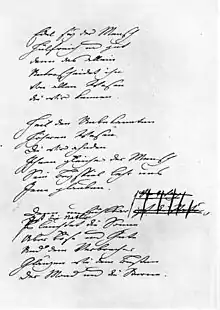 Edel sey der Mensch
Hülfreich und gut
Denn das allein
Unterscheidet ihn
Von allen Wesen
Die wir kennen.
Heil den Unbekannten
Höheren Wesen
Die wir ahnden
Ihnen gleiche der Mensch
Sein Beyspiel lehr uns
Jene glauben.
Es leuchtet die Sonne
Über Bös und Gute
Und dem Verbrecher
Glänzen wie dem Besten
Der Mond und die Sterne.